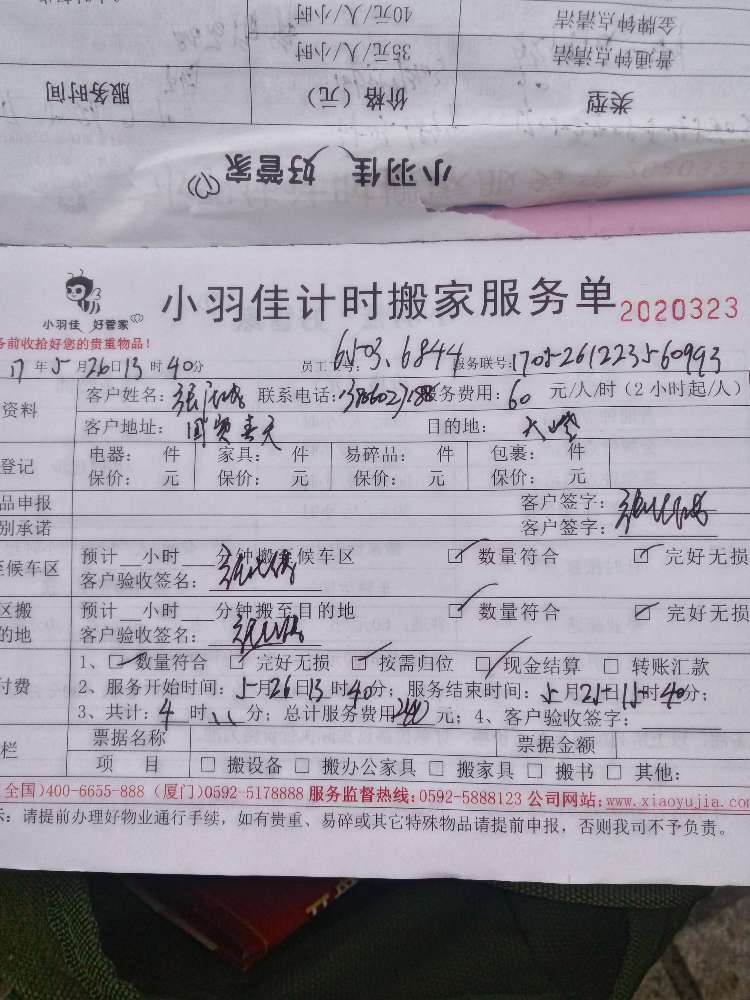 金牌钟点清洁 40元/人/小时
普通钟点清洁 35元/人/小时
类型 价格（元） 服务时间
小羽佳 好管家
小羽佳 好管家
小羽佳计时搬家服务单 2020323
务前收拾好您的贵重物品！
17年5月26日13时40分 员工工号：6503.6844 服务联号：
资料 客户姓名： 联系电话： 服务费用：60 元/人/时（2小时起/人）
客户地址：国贸春天 目的地：
登记 电器： 件 家具： 件 易碎品： 件 包裹： 件
保价： 元 保价： 元 保价： 元 保价： 元
品申报 客户签字：
别承诺 客户签字：
至候车区 预计__小时__分钟搬至候车区 ☑ 数量符合 ☑ 完好无损
客户验收签名：
区搬 预计__小时__分钟搬至目的地 ☑ 数量符合 ☑ 完好无损
的地 客户验收签名：
1、☑ 数量符合 ☑ 完好无损 ☑ 按需归位 ☑ 现金结算 □ 转账汇款
付费 2、服务开始时间：5月26日13时40分；服务结束时间：5月25日15时40分；
3、共计：4时 分；总计服务费用240元；4、客户验收签字：
栏 票据名称 票据金额
项 目 □ 搬设备 □ 搬办公家具 □ 搬家具 □ 搬书 □ 其他：
全国)400-6655-888 (厦门)0592-5178888 服务监督热线:0592-5888123 公司网站:www.xiaoyujia.com
示：请提前办理好物业通行手续，如有贵重、易碎或其它特殊物品请提前申报，否则我司不予负责。